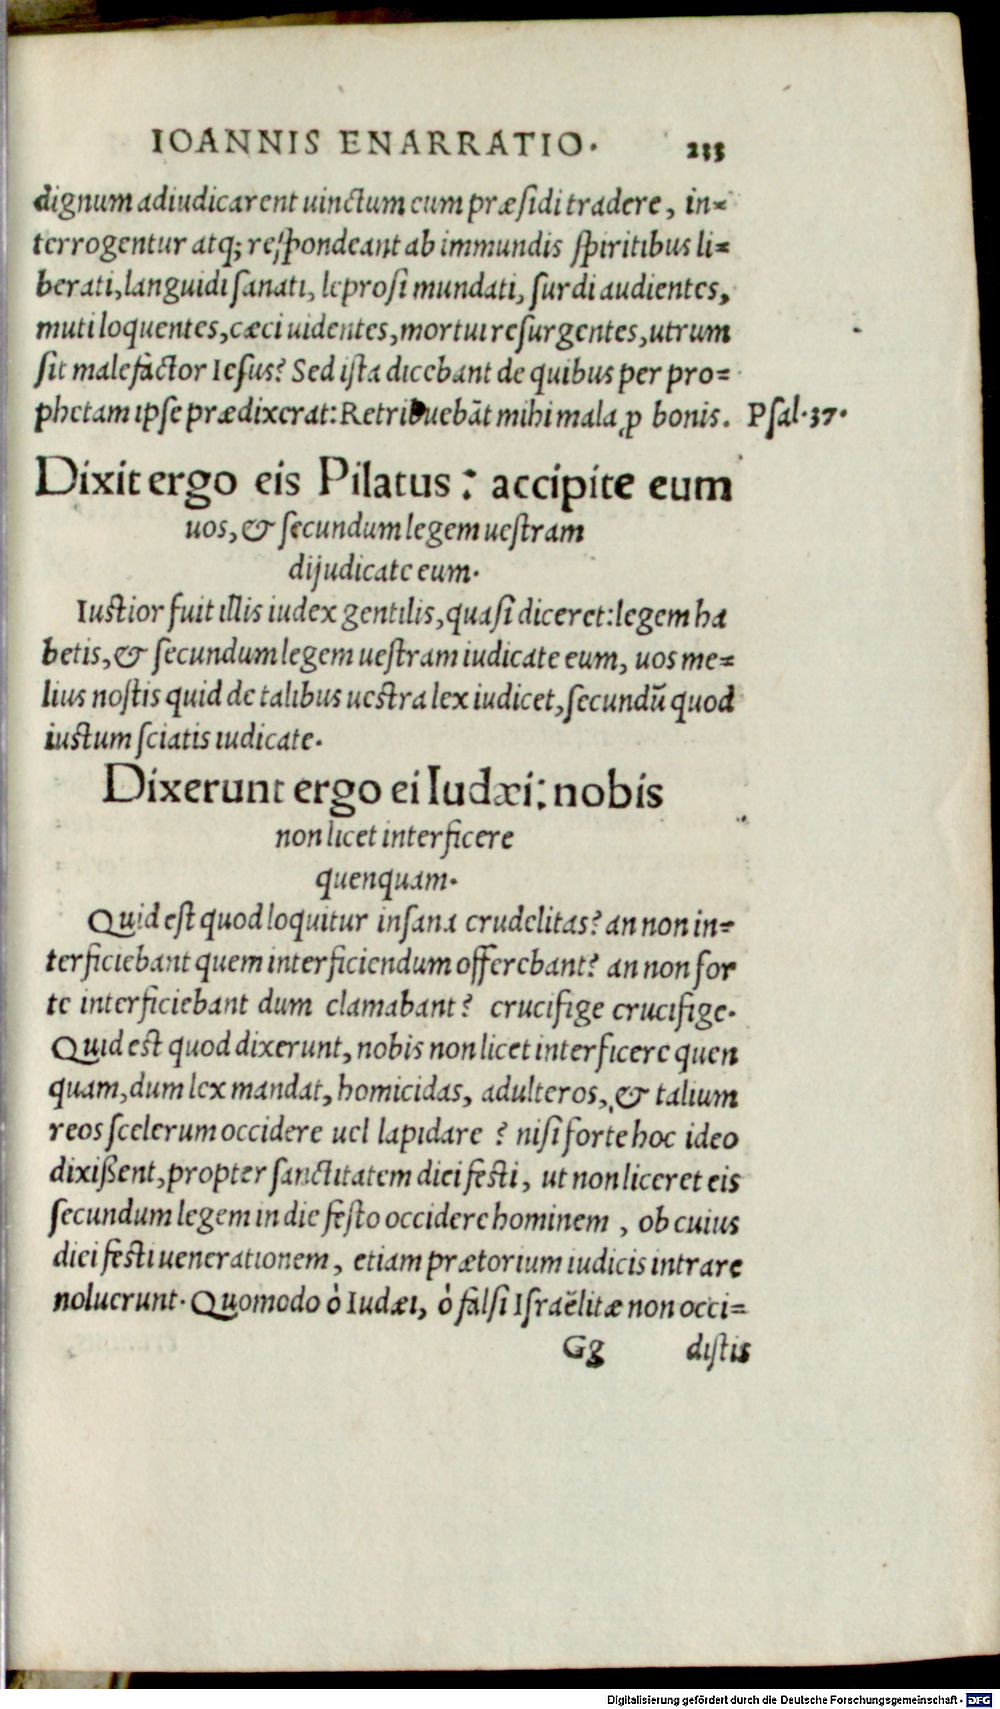 IOANNIS ENARRATIO. 233
dignum adiudicarent uinctum eum præsidi tradere, in=
terrogentur atq; respondeant ab immundis spiritibus li=
berati, languidi sanati, leprosi mundati, surdi audientes,
muti loquentes, cæci uidentes, mortui resurgentes, utrum
sit malefactor Iesus? Sed ista dicebant de quibus per pro=
phetam ipse prædixerat: Retribuebãt mihi mala ꝓ bonis. Psal.37.
Dixit ergo eis Pilatus: accipite eum
uos, & secundum legem uestram
dijudicate eum.
Iustior fuit illis iudex gentilis, quasi diceret: legem ha
betis, & secundum legem uestram iudicate eum, uos me=
lius nostis quid de talibus uestra lex iudicet, secundũ quod
iustum sciatis iudicate.
Dixerunt ergo ei Iudæi: nobis
non licet interficere
quenquam.
Quid est quod loquitur insana crudelitas? an non in=
terficiebant quem interficiendum offerebant? an non for
te interficiebant dum clamabant? crucifige crucifige.
Quid est quod dixerunt, nobis non licet interficere quen
quam, dum lex mandat, homicidas, adulteros, & talium
reos scelerum occidere uel lapidare ? nisi forte hoc ideo
dixißent, propter sanctitatem diei festi, ut non liceret eis
secundum legem in die festo occidere hominem , ob cuius
diei festi uenerationem, etiam prætorium iudicis intrare
noluerunt. Quomodo ò Iudæi, ò falsi Israëlitæ non occi=
Gg distis
Digitalisierung gefördert durch die Deutsche Forschungsgemeinschaft - DFG